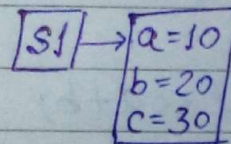 S1 → a=10
b=20
c=30